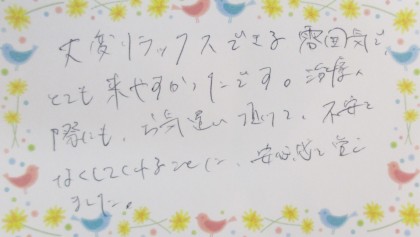 大変リラックスできる雰囲気で、
とても来やすかったです。治療の
際にも、お気遣い頂けて、不安を
なくしてくれることに、安心感を覚え
ました。